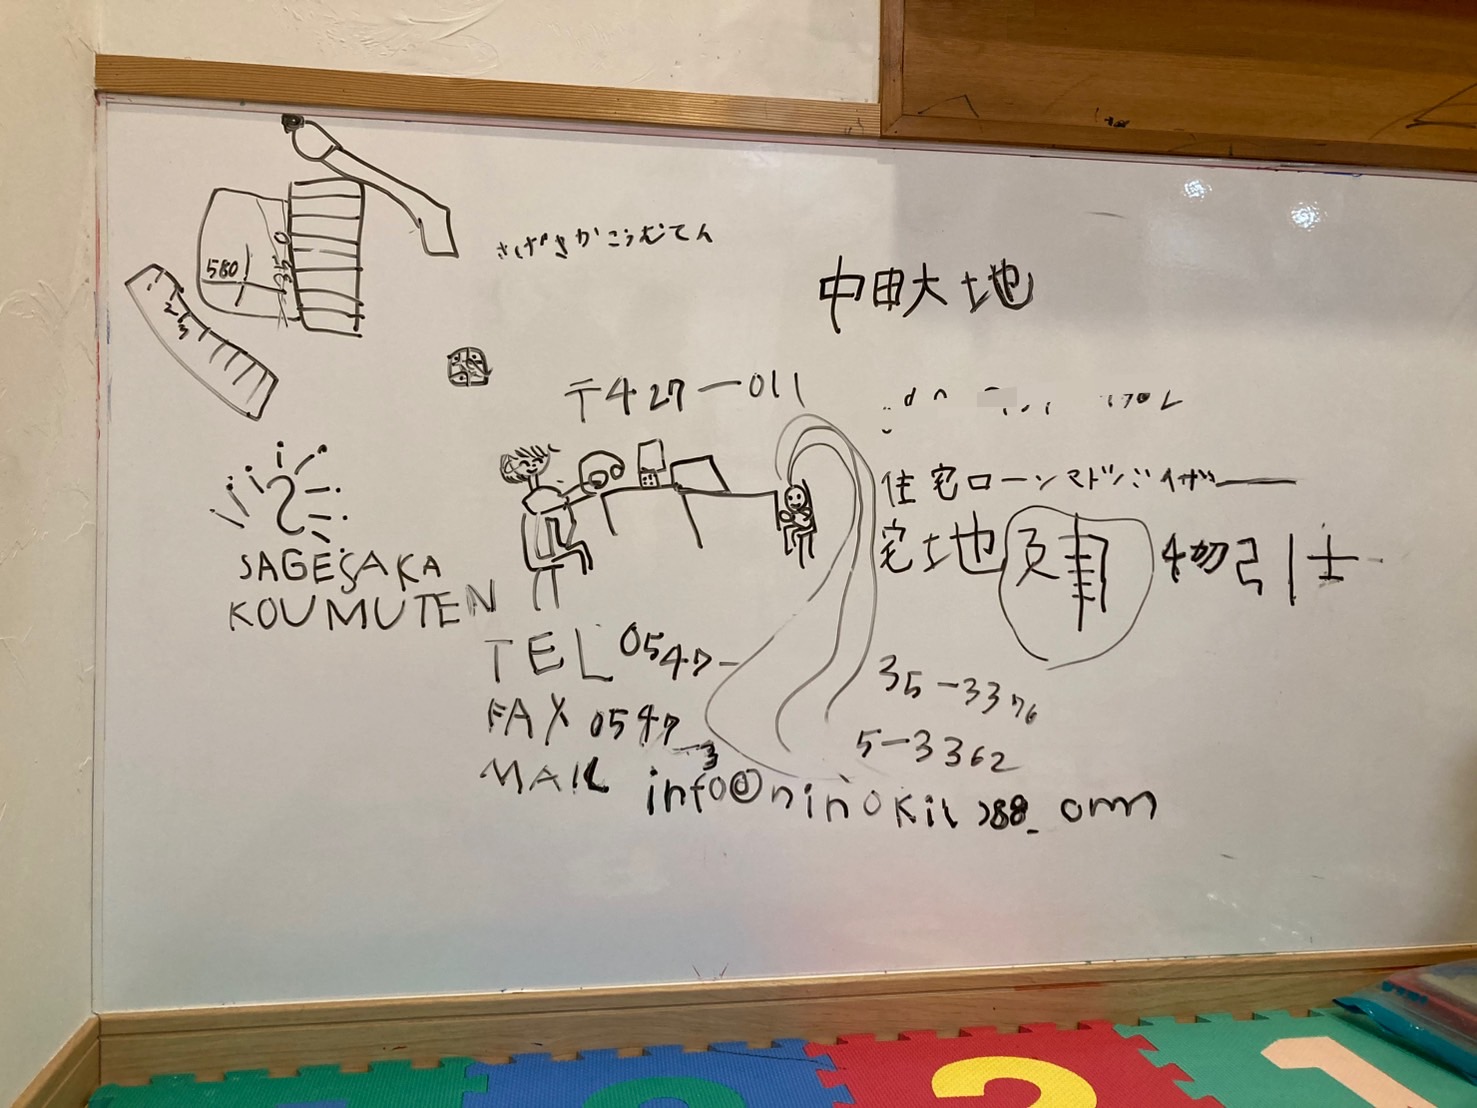 580
さげさかこうむてん
中田大地
〒427-011
住宅ローンアドバイザー
宅地 取引士
SAGESAKA
KOUMUTEN
TEL 0547-35-3376
FAX 0547-35-3362
MAIL info@ninokil
2
1